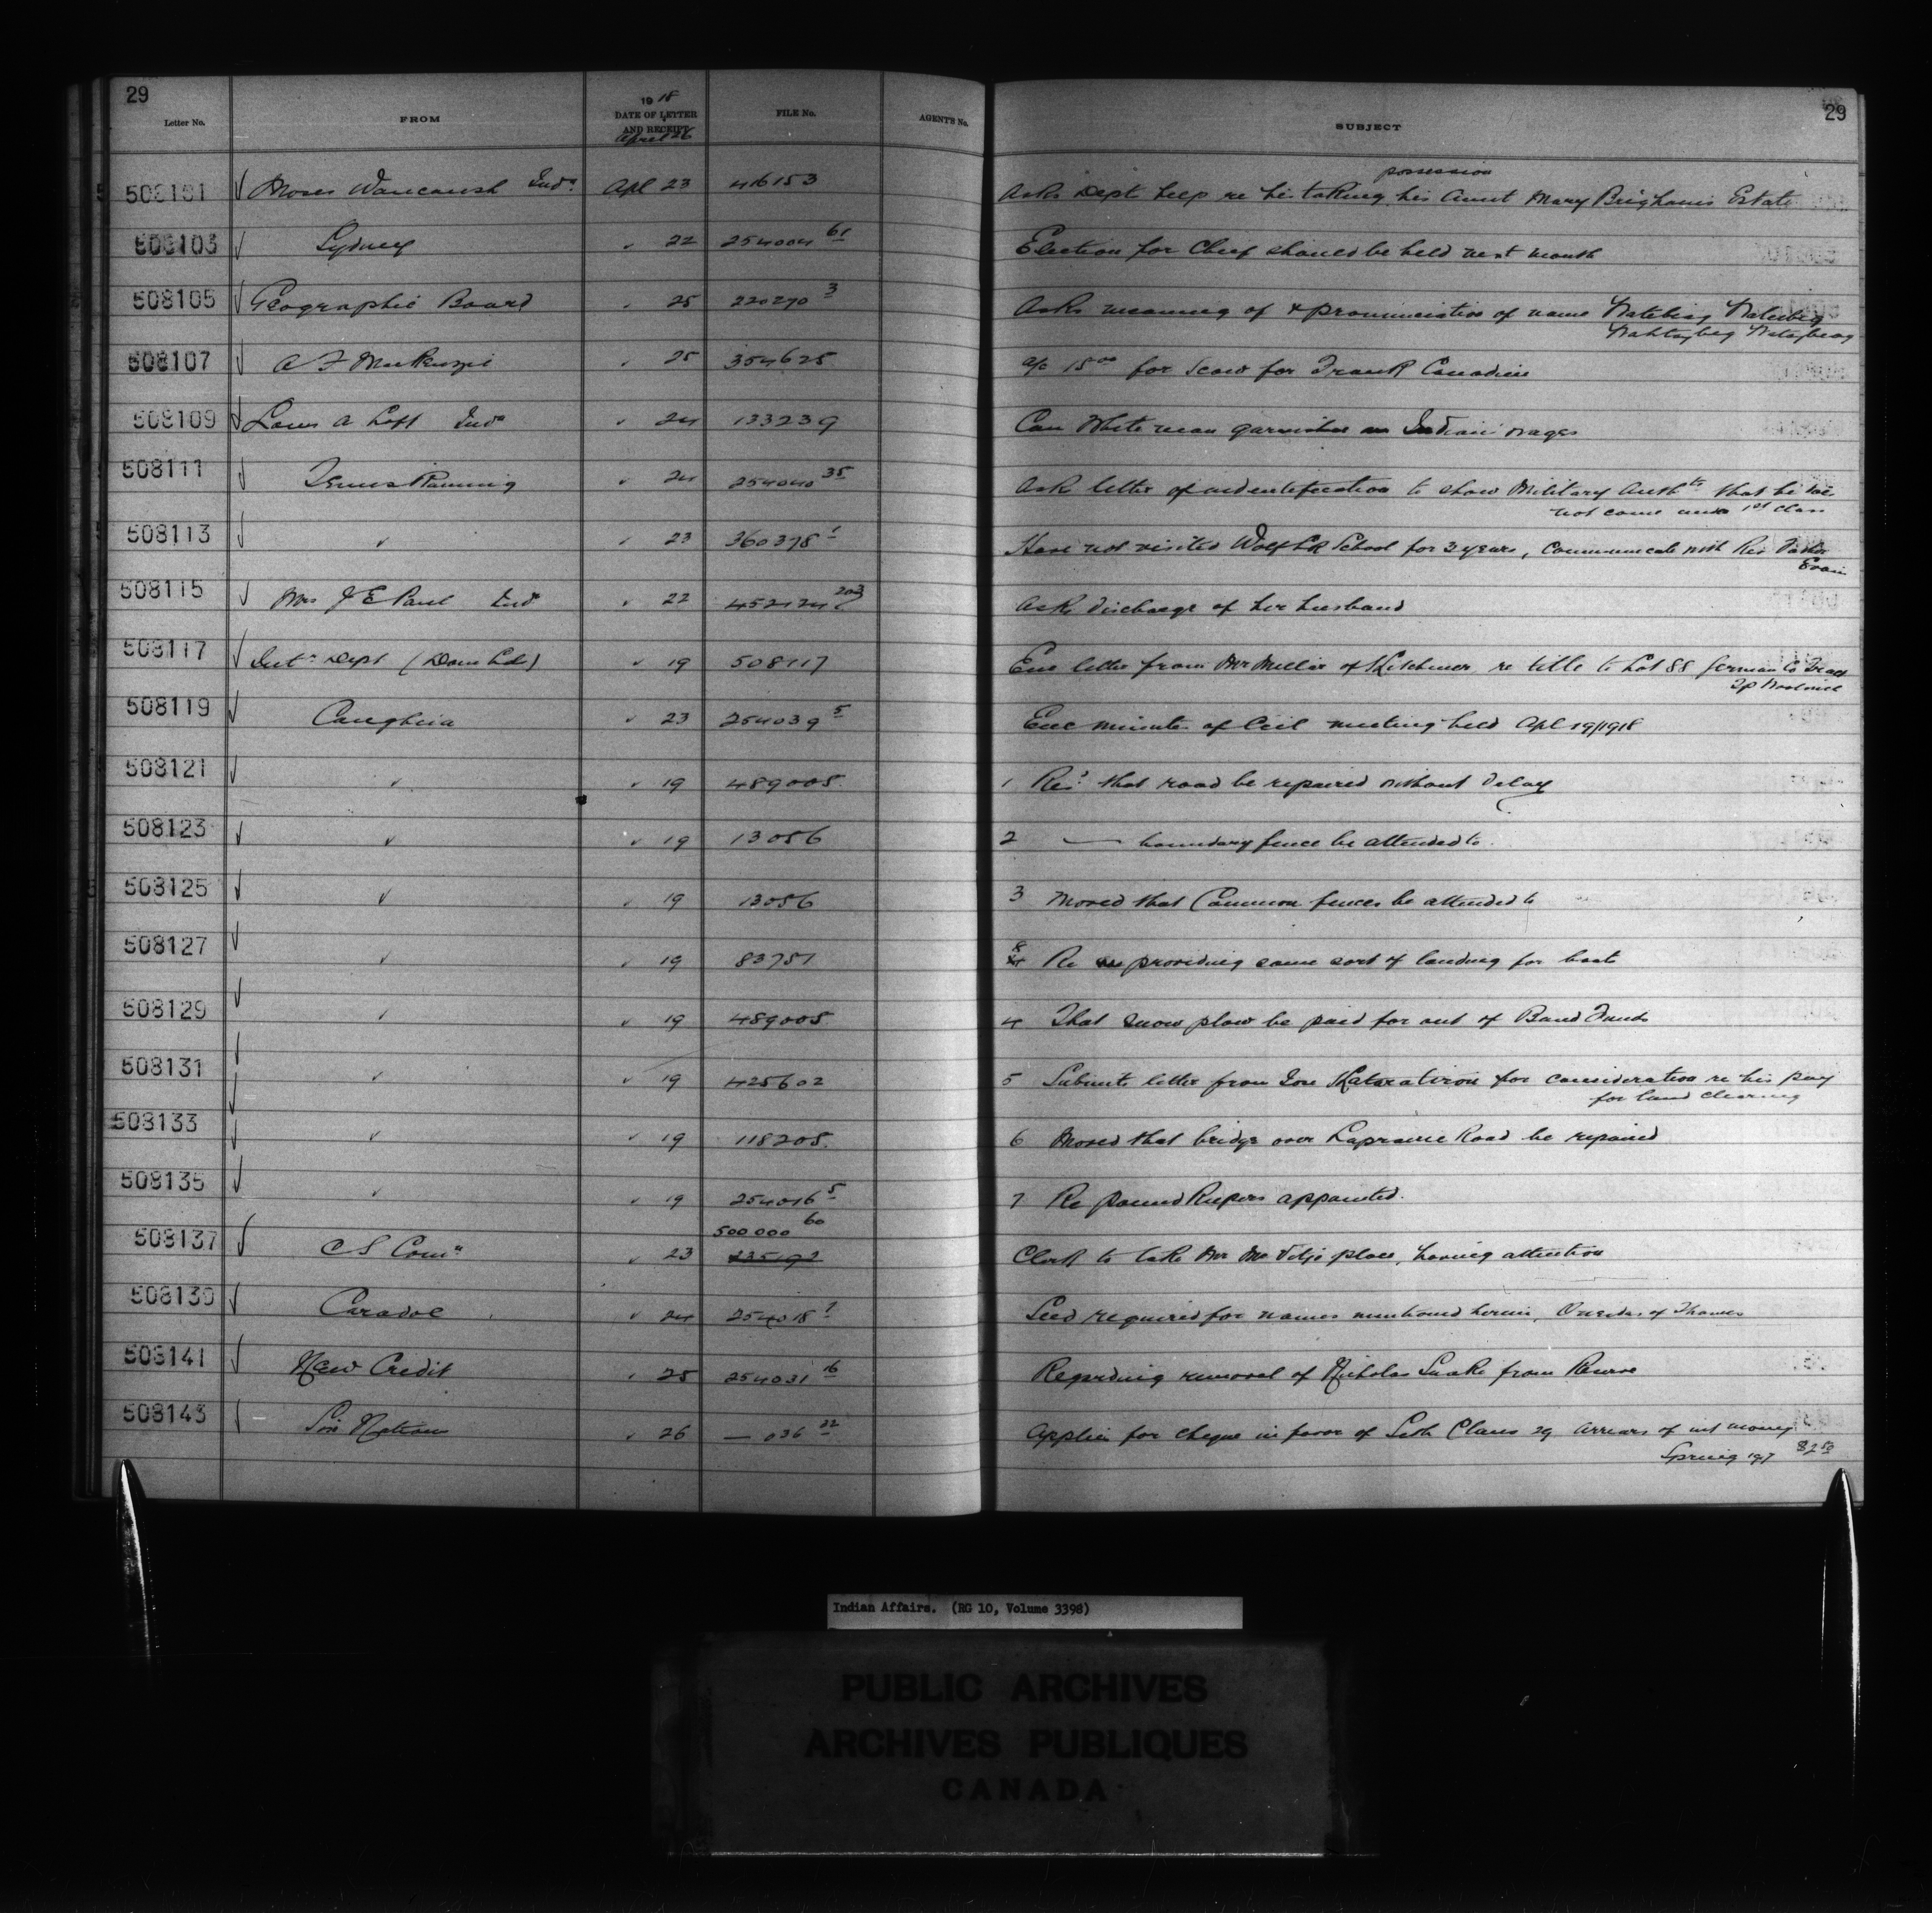 29
Letter No. FROM 1918 DATE OF LETTER AND RECEIPT April 26 FILE No. AGENT'S No. SUBJECT 29
508101 Moses Waucaush Indn Apl 23 416153 Asks Dept help re his taking possession his Aunt Mary Brigham's Estate
508103 Sydney " 22 254004 61 Election for Chief should be held next month
508105 Geographic Board " 25 220270 3 Asks meaning of & pronunciation of name
508107 A F MacKenzie " 25 354625 a/c 15 00 for Scow for Frank Canadien
508109 Louis A Loft Indn " 24 133239 Can White man garnishee an Indian's wages
508111 Temiskaming " 24 254040 35 Ask letter of indentification to show Military Authts that he does
not come under 1st class
508113 " " 23 360378 1 Have not visited Wolf Lk School for 3 years, Communicate with Rev Father
Evain
508115 Mrs J E Paul Ind " 22 452124 203 Asks discharge of her husband
508117 Intr Dept (Dom Ld) " 19 508117 Enc letter from Mr Millar of Kitchener re title to Lot 88 German Co Tract
Tp Woolwich
508119 Caughna " 23 254039 5 Enc minutes of Ccil meeting held Apl 19/1918
508121 " " 19 489005 1 Res: that road be repaired without delay
508123 " " 19 13056 2 — boundary fence be attended to.
508125 " " 19 13056 3 Moved that Common fences be attended to
508127 " " 19 83751 8 Re providing some sort of landing for boats
508129 " " 19 489005 4 That snow plow be paid for out of Band Funds
508131 " " 19 425602 5 Submits letter from for consideration re his pay
for land clearing
508133 " " 19 118205. 6 Moved that bridge over Laprairie Road be repaired
508135 " " 19 254016 5 7 Re Pound Keepers appointed.
508137 C S Comn " 23 500000 60 235192 Clerk to take Mr place, having attention
508139 Caradoc " 24 254018 7 Seed required for names mentioned herein, Oneidas of Thames
508141 New Credit " 25 254031 16 Regarding removal of Nicholas Snake from Reserve
508143 Six Nations " 26 — 036 22 Applies for cheque in favor of Seth Claus 29 arrears of int money
Spring 1917 $2 50
Indian Affairs. (RG 10, Volume 3398)
PUBLIC ARCHIVES
ARCHIVES PUBLIQUES
CANADA